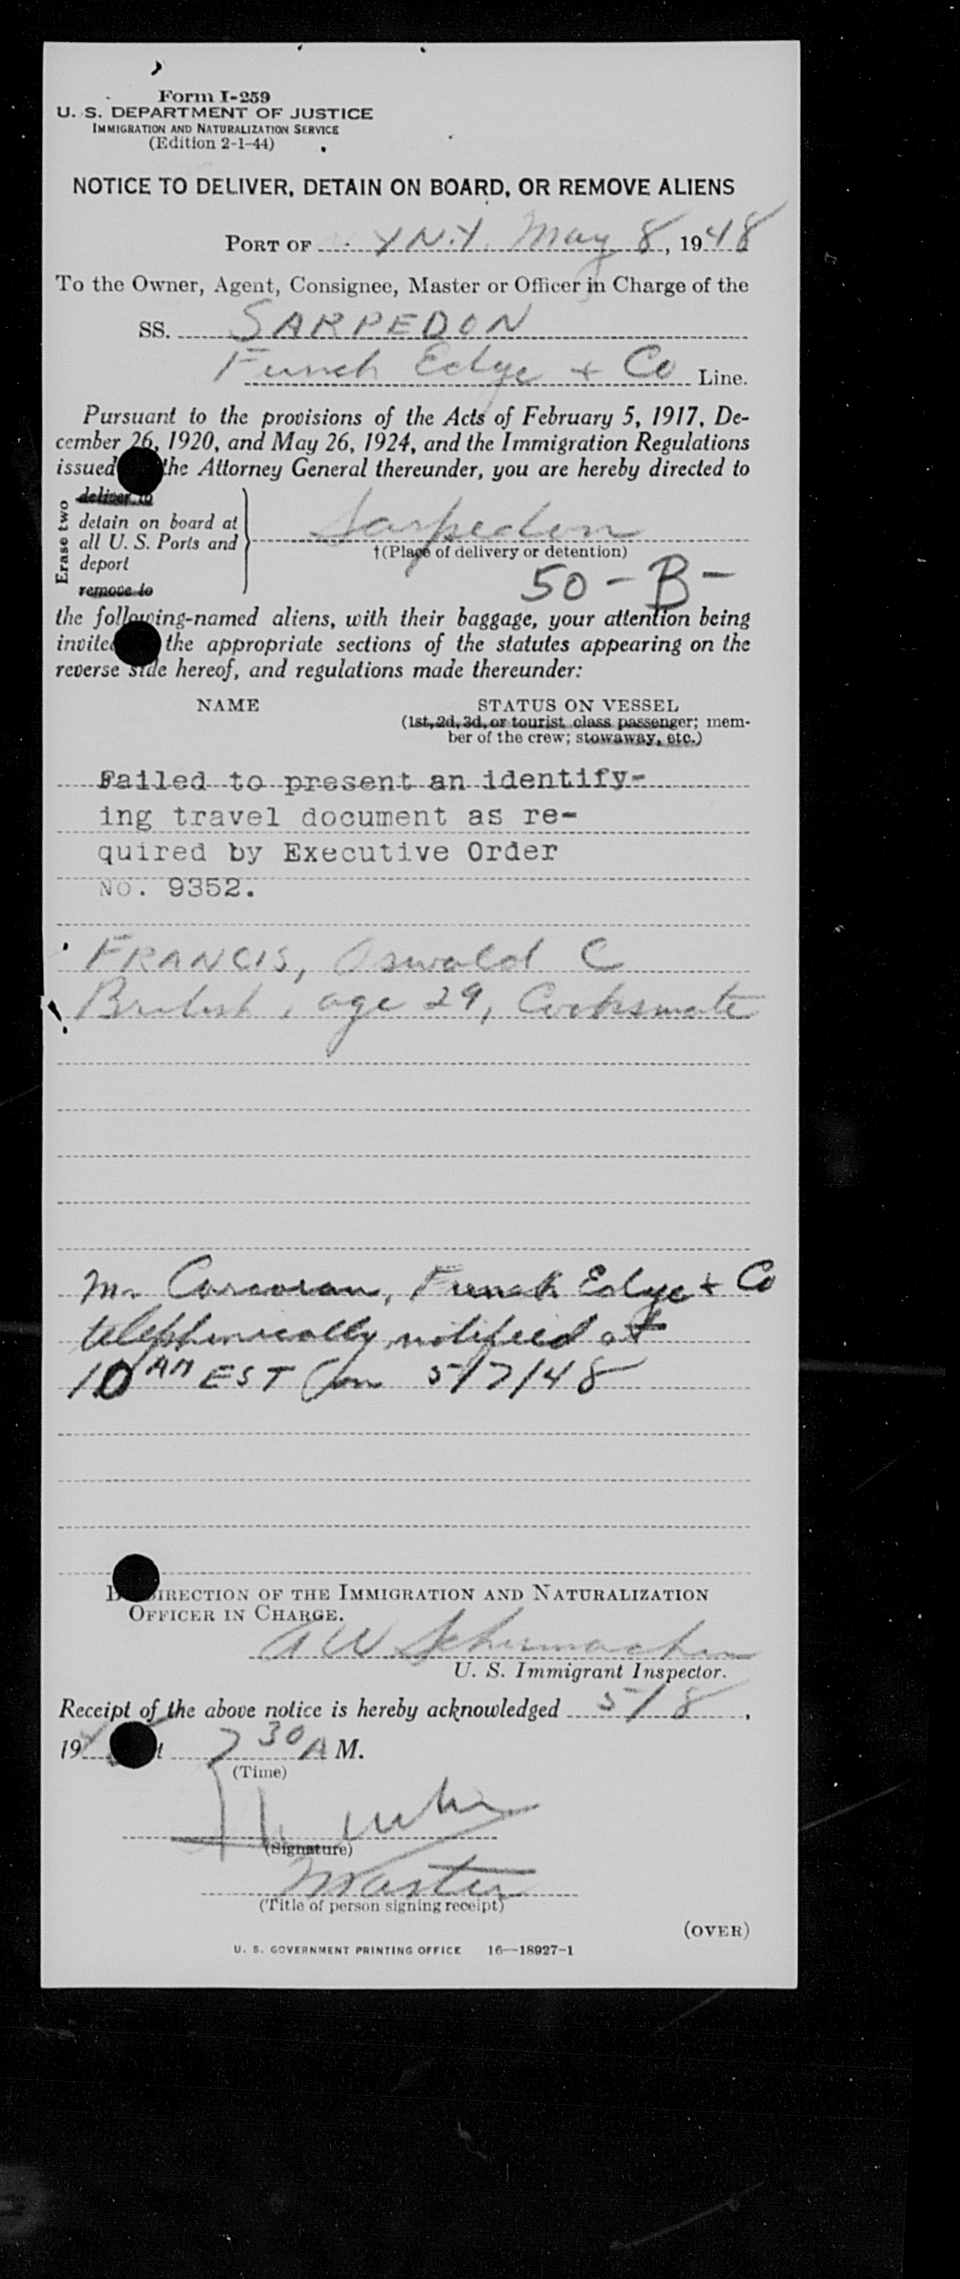 Form I-259
U. S. DEPARTMENT OF JUSTICE
IMMIGRATION AND NATURALIZATION SERVICE
(Edition 2-1-44)
NOTICE TO DELIVER, DETAIN ON BOARD, OR REMOVE ALIENS
PORT OF Y N.Y. May 8, 1948
To the Owner, Agent, Consignee, Master or Officer in Charge of the
SS. SARPEDON
Funch Edye + Co Line.
Pursuant to the provisions of the Acts of February 5, 1917, De-
cember 26, 1920, and May 26, 1924, and the Immigration Regulations
issued the Attorney General thereunder, you are hereby directed to
Erase two
deliver to
detain on board at
all U. S. Ports and
deport
remove to
Sarpedon
†(Place of delivery or detention)
50-B-
the following-named aliens, with their baggage, your attention being
invited the appropriate sections of the statutes appearing on the
reverse side hereof, and regulations made thereunder:
NAME STATUS ON VESSEL
(1st, 2d, 3d, or tourist class passenger; mem-
ber of the crew; stowaway, etc.)
Failed to present an identify-
ing travel document as re-
quired by Executive Order
No. 9352.
FRANCIS, Oswald C
British, age 29, Cooksmate
Mr Corcoran, Funch Edye + Co
telephonically notified at
10 AM EST on 5/7/48
DIRECTION OF THE IMMIGRATION AND NATURALIZATION
OFFICER IN CHARGE.
A W Schumacher
U. S. Immigrant Inspector.
Receipt of the above notice is hereby acknowledged 5/8,
19 t 7 30 A M.
(Time)
(Signature)
Master
(Title of person signing receipt)
(OVER)
U. S. GOVERNMENT PRINTING OFFICE 16—18927-1